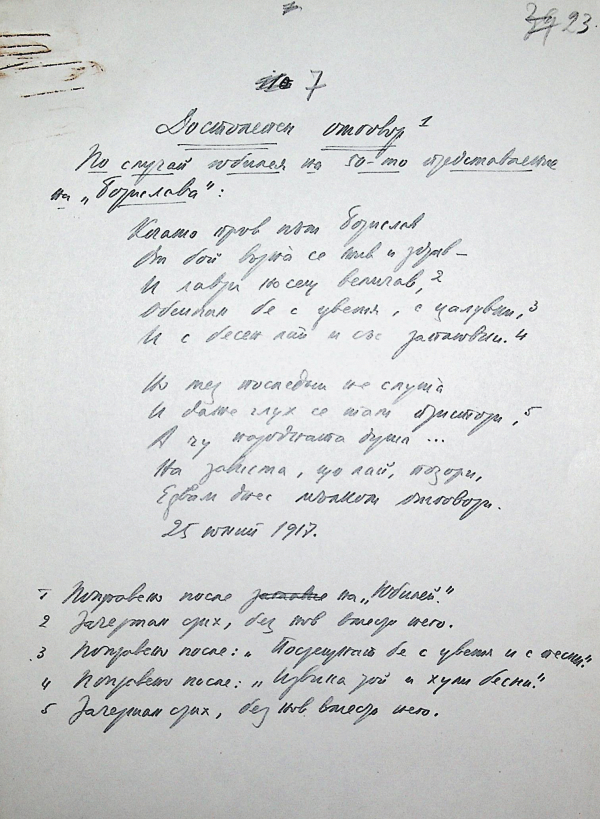 23.
7
Достолепен отговор 1
По случай юбилея на 50-то представление
на „Борислава“:
Когато пров път Борислав
От бой върна се жив и здрав –
И лаври носещ величав, 2
Обсипан бе с цветя, с цалувки, 3
И с бесен лай и със 4
Но тез последни не слуша
И даже глух се там престори, 5
А чу народната душа ...
На завистта, що лай, позори,
Едвам днес мълком отговори.
25 юний 1917.
1 Поправено после на „Юбилей“.
2 Зачертан стих, без нов вместо него.
3 Поправено после: „Посрещнат бе с цветя и с песни“.
4 Поправено после: „Извика зой и хули бесни“.
5 Зачертан стих, без нов вместо него.